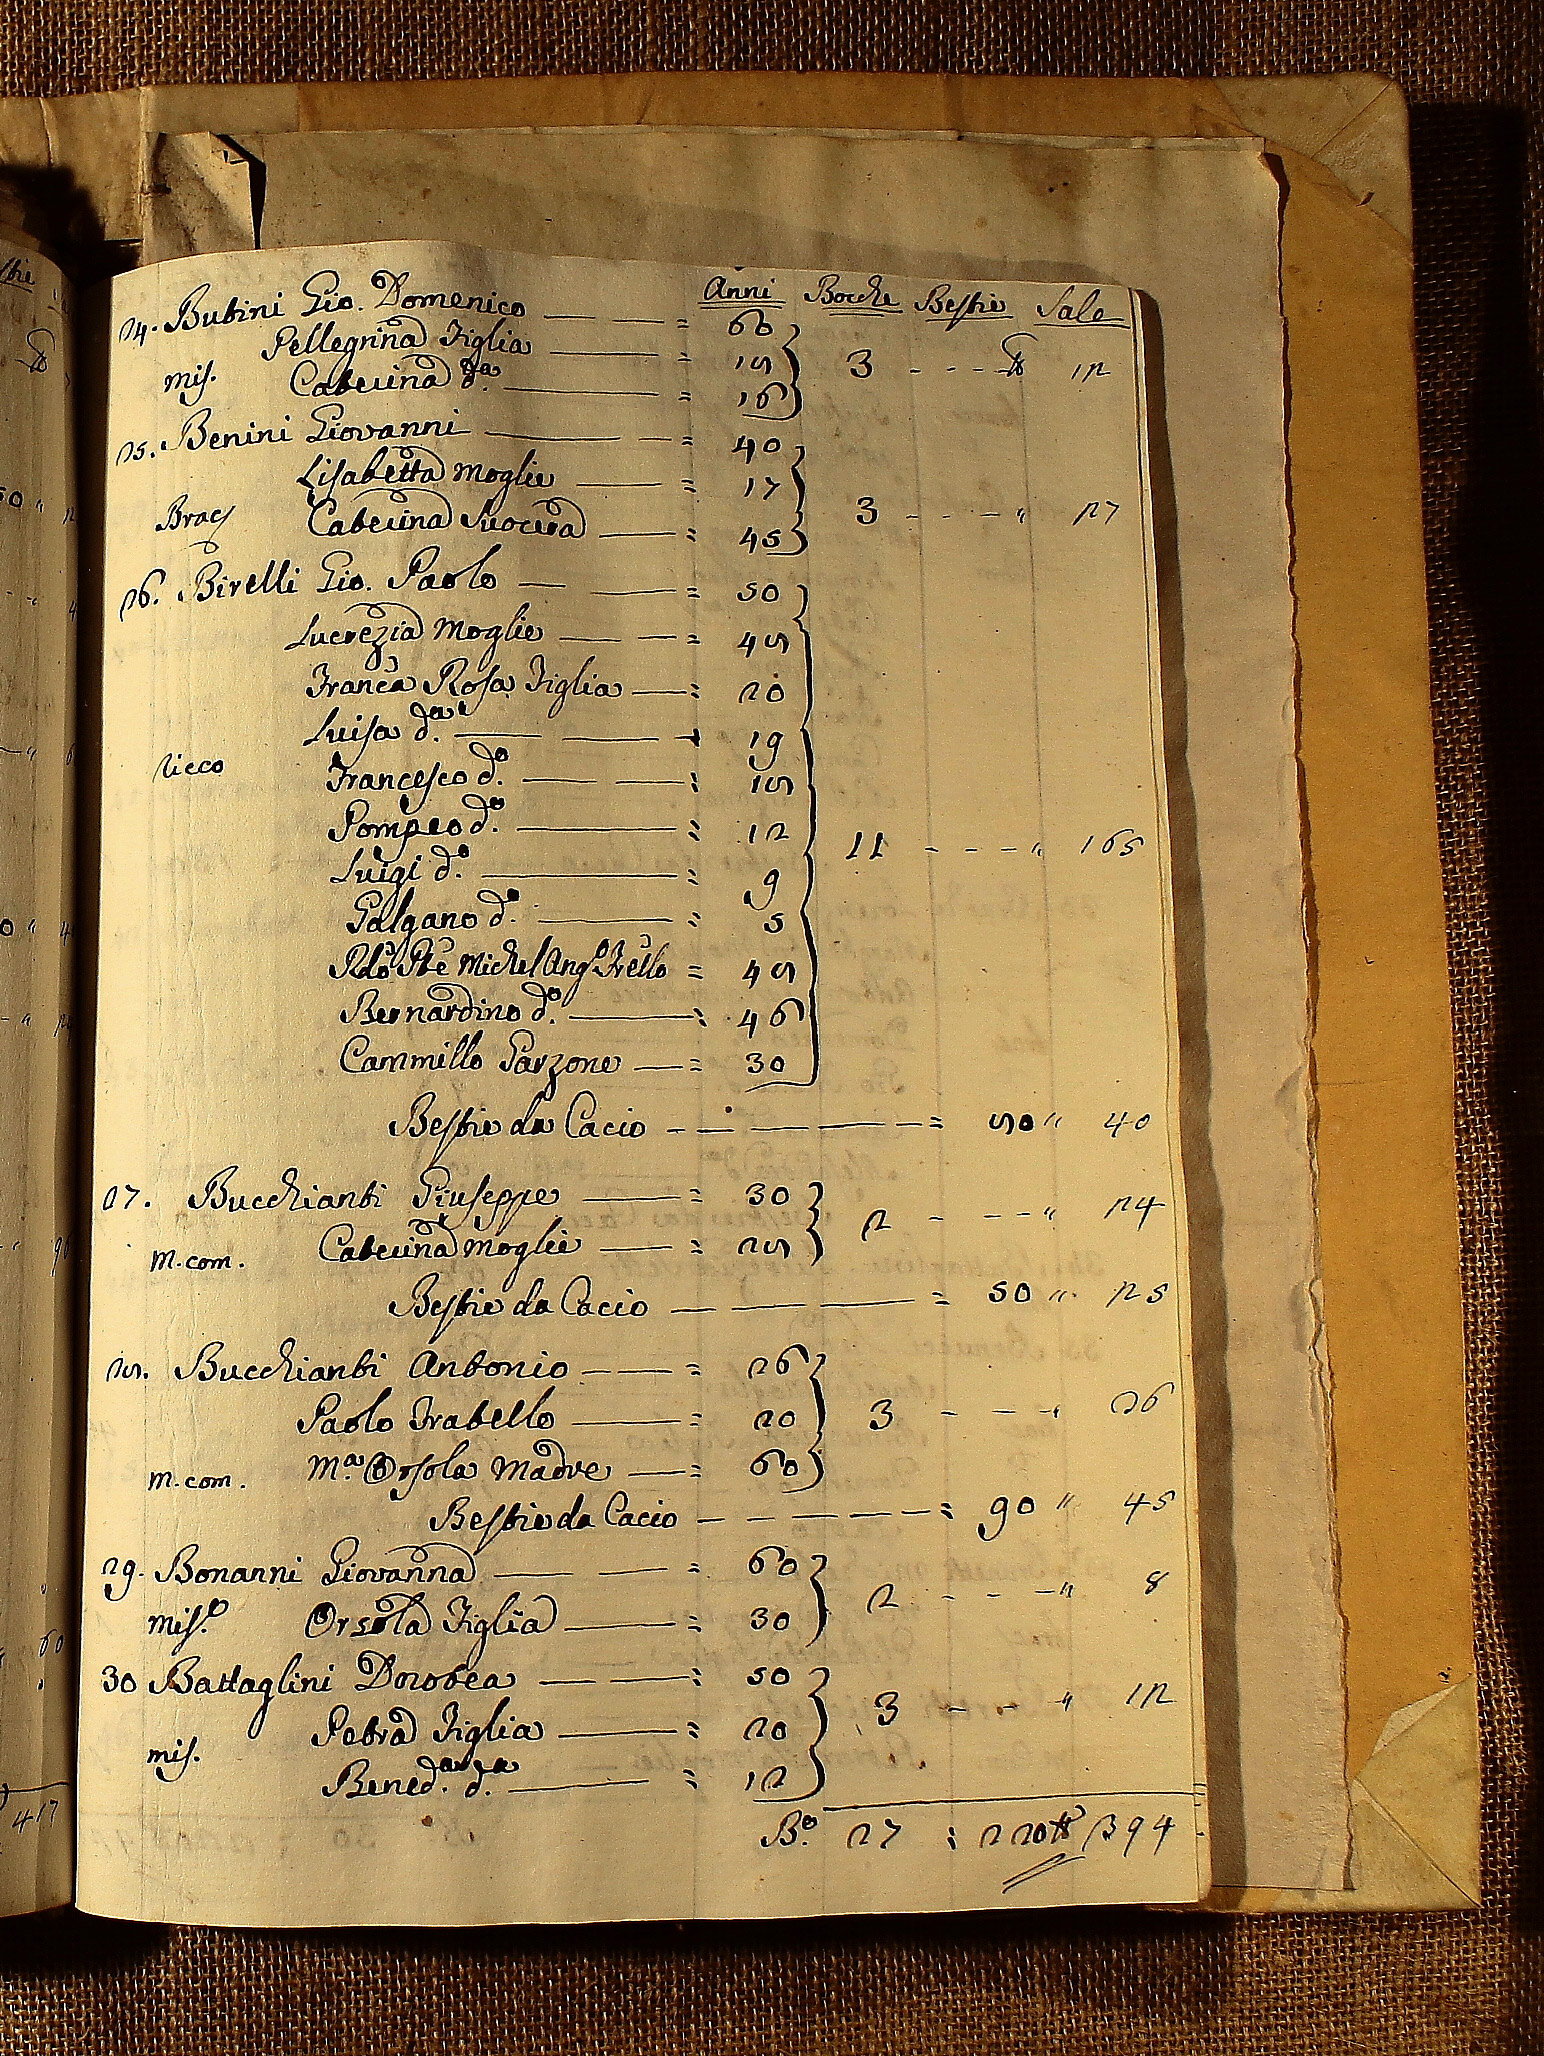 Anni Bocche Bestie Sale
24. Butini Gio. Domenico = 66
Pellegrina Figlia = 18
mis. Caterina d.ª = 16 } 3 - - - - ℔ 12
25. Benini Giovanni = 40
Lisabetta Moglie = 17
Brac. Caterina Suocera = 45 } 3 - - - " 27
26. Birelli Gio. Paolo = 50
Lucrezia Moglie = 48
Franca Rosa Figlia = 20
Luisa d.ª = 19
ricco Francesco d.º = 18
Pompeo d.º = 12
Luigi d.º = 9 } 11 - - - " 165
Galgano d.º = 5
Rdo Pte Michel Ang.º Frello = 48
Bernardino d.º = 46
Cammillo Garzone = 30
Bestie da Cacio = 80 " 40
27. Bucchianti Giuseppe = 30
m. com. Caterina Moglie = 28 } 2 - - - " 24
Bestie da Cacio = 50 " 25
28. Bucchianti Antonio = 26
Paolo Fratello = 20 } 3 - - - " 36
m. com. M.ª Orsola Madre = 60
Bestie da Cacio = 90 " 45
29. Bonanni Giovanna = 60
mis.º Orsola Figlia = 30 } 2 - - - " 8
30 Battaglini Dorotea = 50
Petra Figlia = 20 } 3 - - " 12
mis. Bened.ª d.ª = 12
B.º 27 : 220 ℔ 394